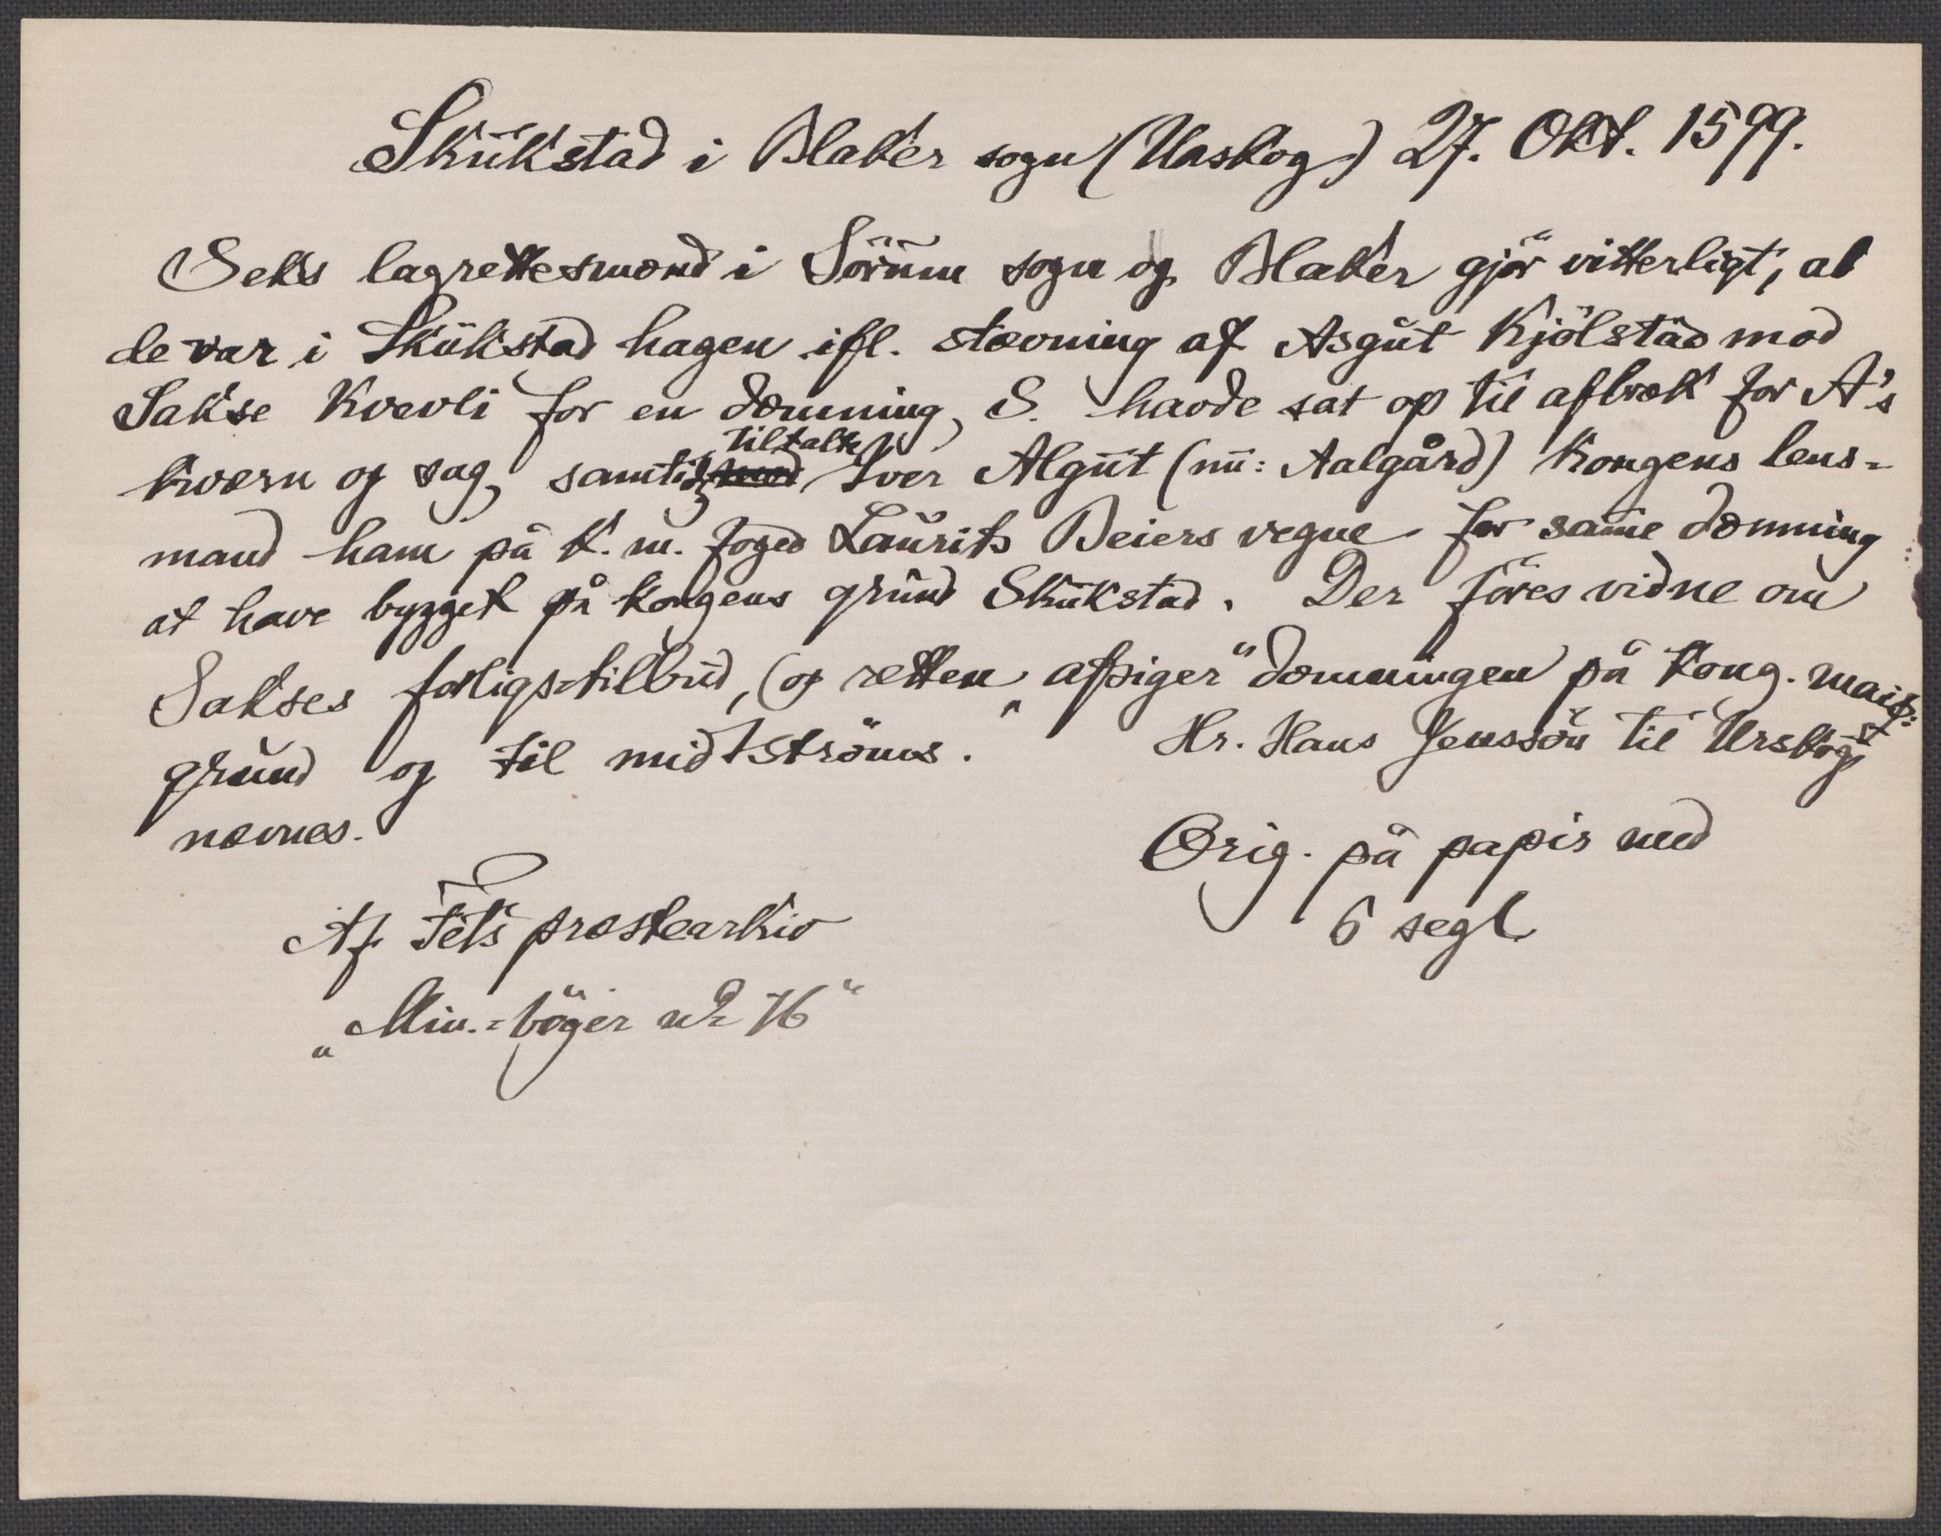 Skukstad i Blaker sogn (Urskog) 27. Okt. 1599.
Seks lagrettesmænd i Sörum sogn og Blaker gjör vitterligt, at
de var i Skukstad hagen ifl. stævning af Asgut Kjölstad mod
Sakse Kvevli for en dæmning, S. havde sat op til afbræk for A's
kværn og sag, samtidig tiltalte Iver Algut (nu: Aalgård) kongens lens-
mand ham på k. m. foged Laurits Beiers vegne for samme dæmning
at have bygget på kongens grund Skukstad. Der föres vidne om
Sakses forligstilbud, (og retten „afsiger“ dæmningen på kong. maits:
grund og til midtströms. Hr. Hans Jenssön til Urskog
nævnes.
Orig. på papir med
6 segl
Af Fets præstearkiv
„Min.-böger nr. 16“